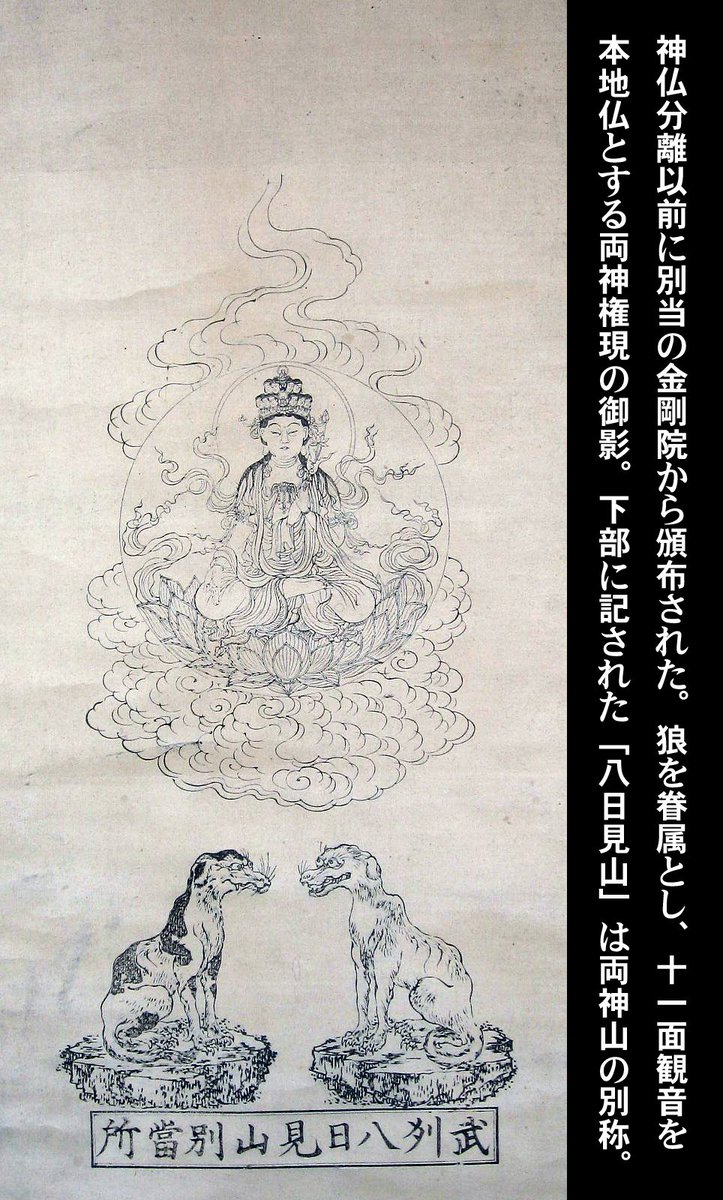 神仏分離以前に別当の金剛院から頒布された。狼を眷属とし、十一面観音を
本地仏とする両神権現の御影。下部に記された「八日見山」は両神山の別称。
武刕八日見山別當所